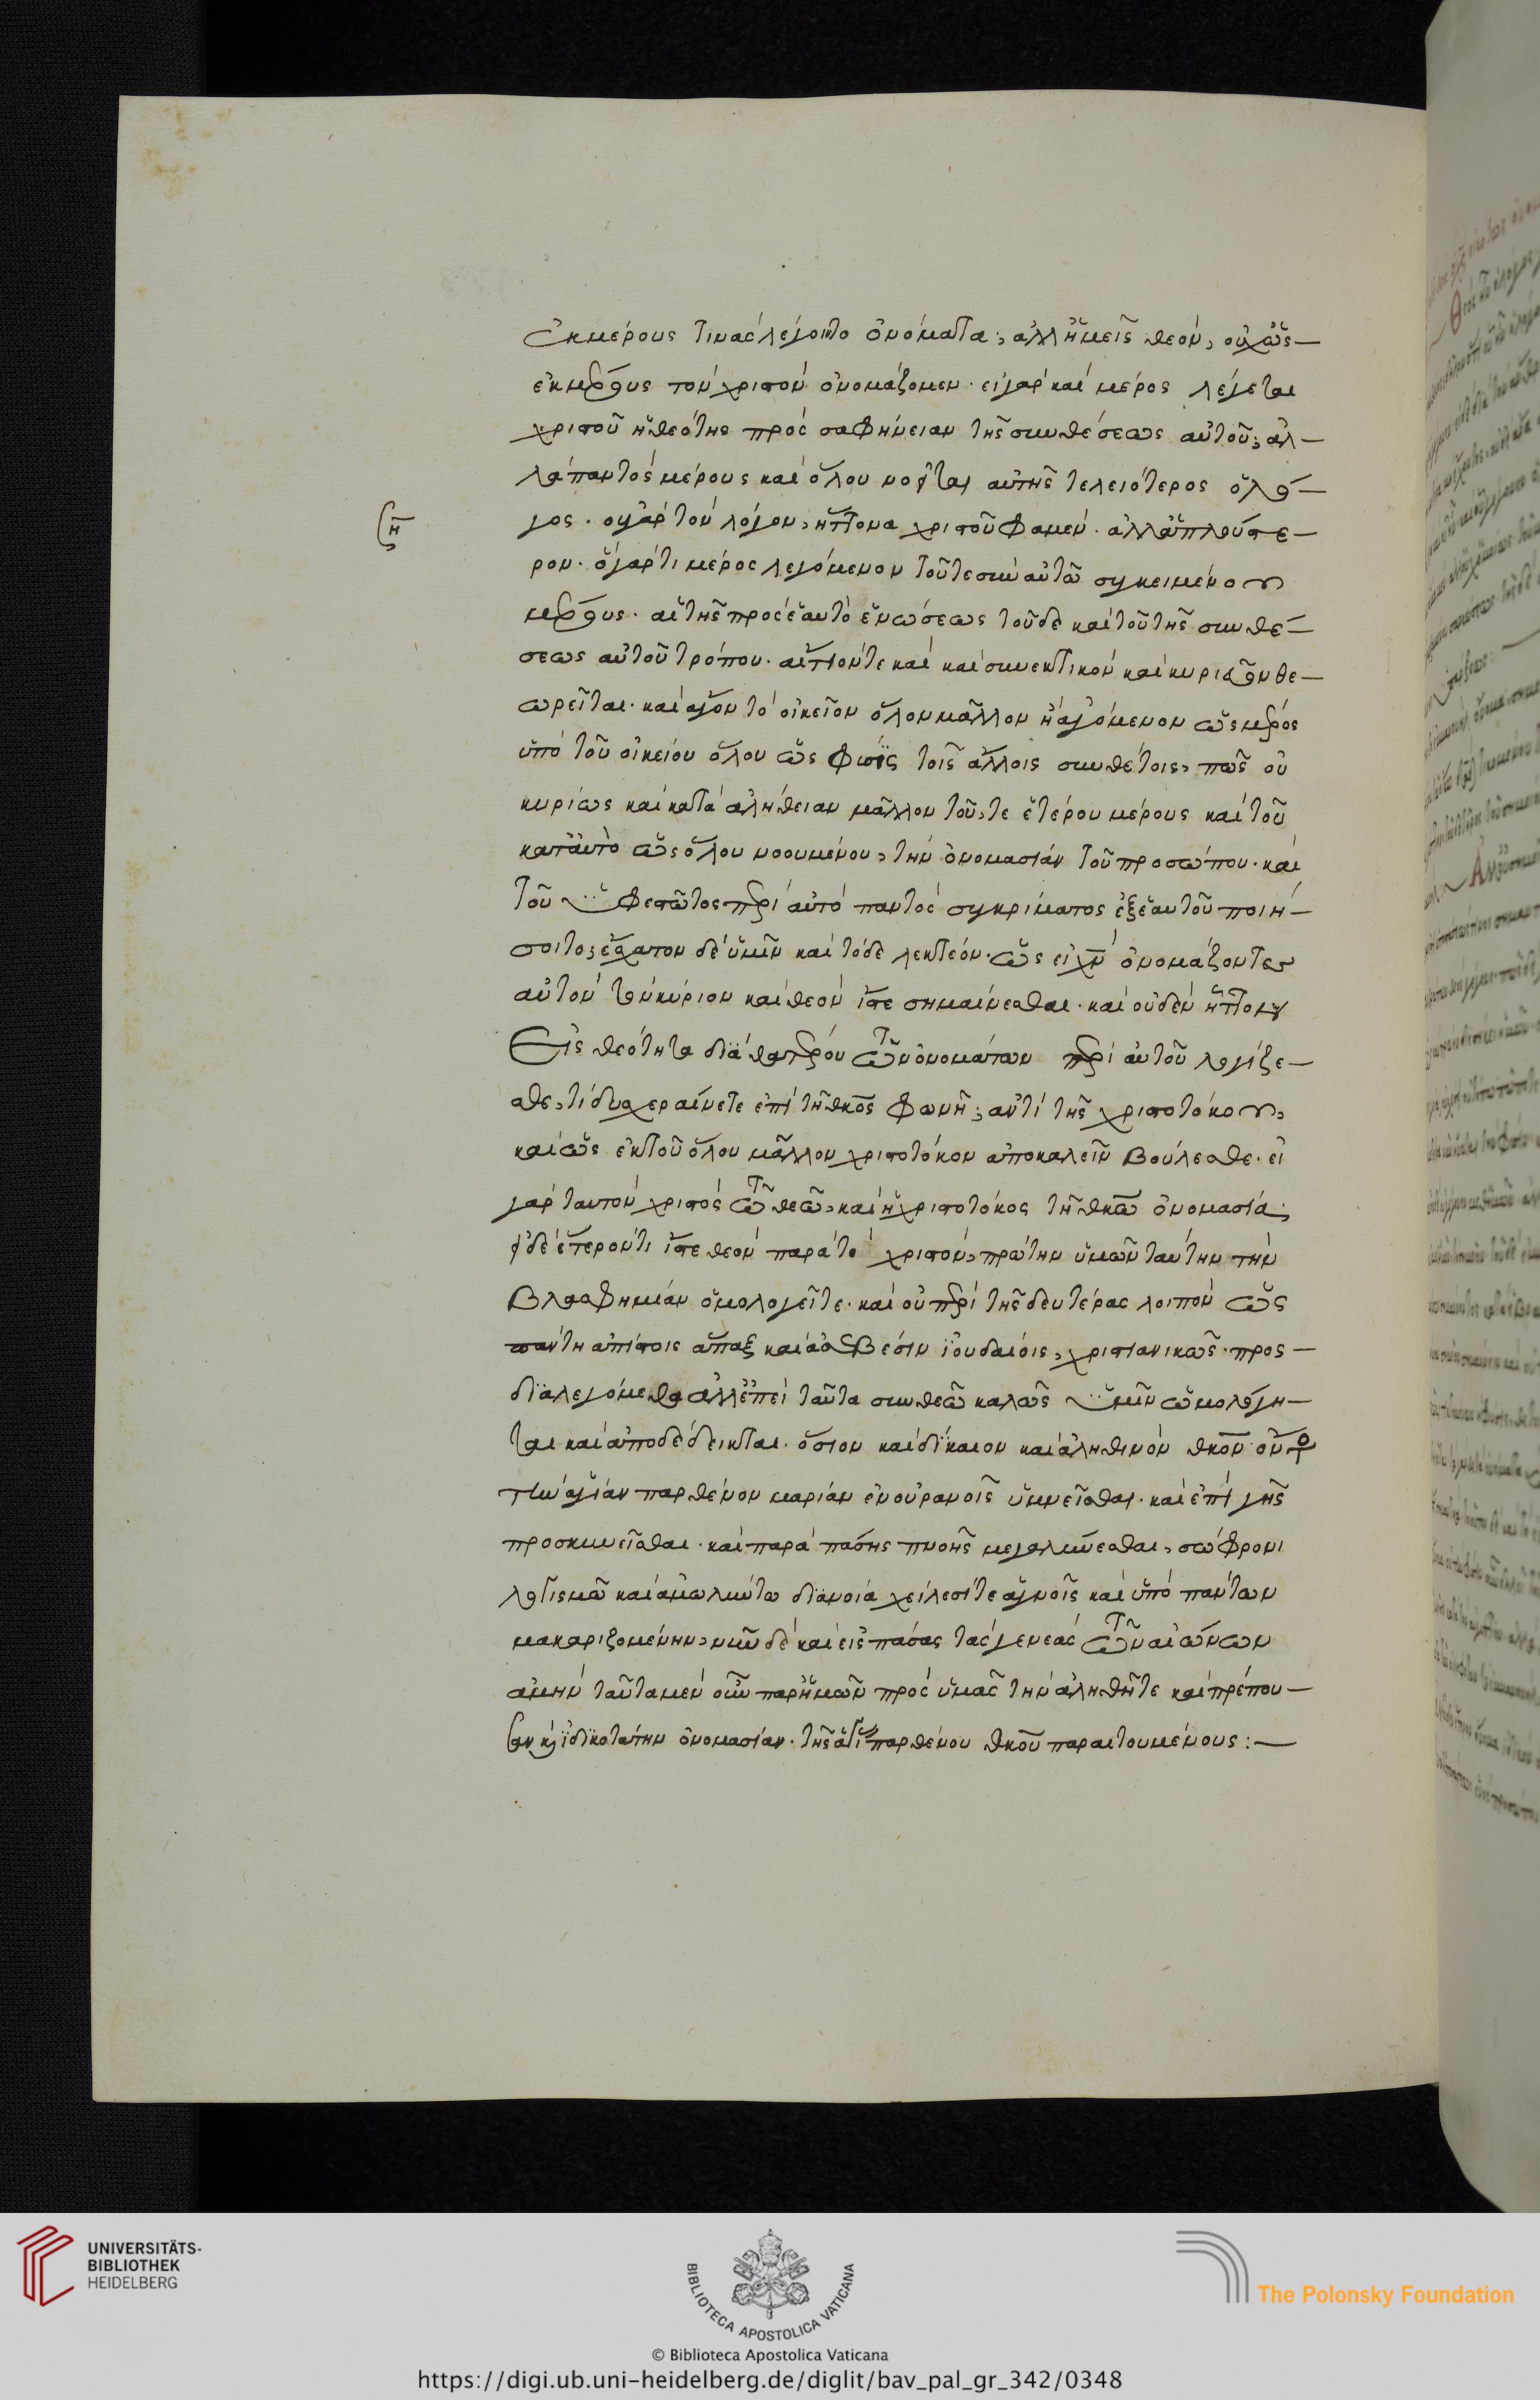 ἐκ μέρους τινὰς λέγοιντο ὀνόματα; ἀλλ ἡμεῖς θεὸν, οὐχ ὡς
ἐκ μέρους τὸν χριστὸν ὀνομάζομεν. εἰ γὰρ καὶ μέρος λέγεται
χριστοῦ ἡ θεότης πρὸς σαφήνειαν τῆς συνθέσεως αὐτοῦ; ἀλ
λὰ παντὸς μέρους καὶ ὅλου νοεῖται αὐτῆς τελειότερος ὁ λό
γος. οὐ γὰρ τὸν λόγον, ἥττονα χριστοῦ φαμὲν. ἀλλ ἁπλούστε
ρον. ὃ γάρ τι μέρος λεγόμενον τοῦ τε σὺν αὐτῶ συγκειμένου
μέρους. αὖ τῆς πρὸς ἑαυτὸ ἑνώσεως τοῦδε καὶ τοῦ τῆς συνθέ
σεως αὐτοῦ τρόπου. αἴτιόν τε καὶ καὶ συνεκτικὸν καὶ κυριεῦον θε
ωρεῖται. καὶ ἄγον τὸ οἰκεῖον ὅλον μᾶλλον ἢ ἀγόμενον ὡς μέρος
ὑπὸ τοῦ οἰκείου ὅλου ὡς φύσις τοῖς ἄλλοις συνθέτοις, πῶς οὐ
κυρίως καὶ κατὰ ἀλήθειαν μᾶλλον τοῦ, τε ἑτέρου μέρους καὶ τοῦ
κατ αὐτὸ ὡς ὅλου νοουμένου, τὴν ὀνομασίαν τοῦ προσώπου. καὶ
τοῦ ὑφεστῶτος περὶ αὐτὸ παντὸς συγκρίματος ἐξ ἑαυτοῦ ποιή
σοιτο; ἔσχατον δὲ ὑμῖν καὶ τόδε λεκτέον. ὡς εἰ χν̄ ὀνομάζοντες
αὐτὸν τὸν κύριον καὶ θεὸν ἴστε σημαίνεσθαι. καὶ οὐδὲν ἧττον
Εἰς θεότητα διὰ θατέρου τῶν ὀνομάτων περὶ αὐτοῦ λογίζε
σθε, τί δυσχεραίνετε ἐπὶ τῆ θκος φωνῆ; ἀντὶ τῆς χριστοτόκου,
καὶ ὡς ἐκ τοῦ ὅλου μᾶλλον χριστοτόκον ἀποκαλεῖν βούλεσθε. εἰ
γὰρ ταυτὸν χριστὸς τῶ θεῶ, καὶ ἡ χριστοτόκος τῆ θκω ὀνομασία;
εἰ δὲ ἕτερόν τι ἴστε θεὸν παρὰ τὸ χριστὸν, πρώτην ὑμῶν ταύτην τὴν
βλασφημίαν ὁμολογεῖτε. καὶ οὐ περὶ τῆς δευτέρας λοιπὸν ὡς
πάντη ἀπίστοις ἅπαξ καὶ ἀσεβέσιν ἰουδαίοις, χριστιανικῶς. προς
διαλεγόμεθα ἀλλ ἐπεὶ ταῦτα σὺν θεῶ καλῶς ὑμῖν ὡμολόγη
ται καὶ ἀποδέδεικται. ὅσιον καὶ δίκαιον καὶ ἀληθινὸν θκον ὄντως
τὴν ἁγίαν παρθένον μαρίαν ἐν οὐρανοῖς ὑμνεῖσθαι. καὶ ἐπὶ γῆς
προσκυνεῖσθαι. καὶ παρὰ πάσης πνοῆς μεγαλύνεσθαι, σώφρονι
λογισμῶ καὶ ἀμωλύντω διανοία χείλεσί τε ἁγνοῖς καὶ ὑπὸ πάντων
μακαριζομένην, νῦν δὲ καὶ εἰς πάσας τὰς γενεὰς τῶν αἰώνων
ἀμήν ταῦτα μὲν οὖν παρ ἡμῶν πρὸς ὑμᾶς τὴν ἀληθῆ τε καὶ πρέπου
σαν καὶ ἰδικοτάτην ὀνομασίαν. τῆς ἁγίας παρθένου θκου παραιτουμένους:
UNIVERSITÄTS-
BIBLIOTHEK
HEIDELBERG
BIBLIOTECA APOSTOLICA VATICANA
The Polonsky Foundation
© Biblioteca Apostolica Vaticana
https://digi.ub.uni-heidelberg.de/diglit/bav_pal_gr_342/0348